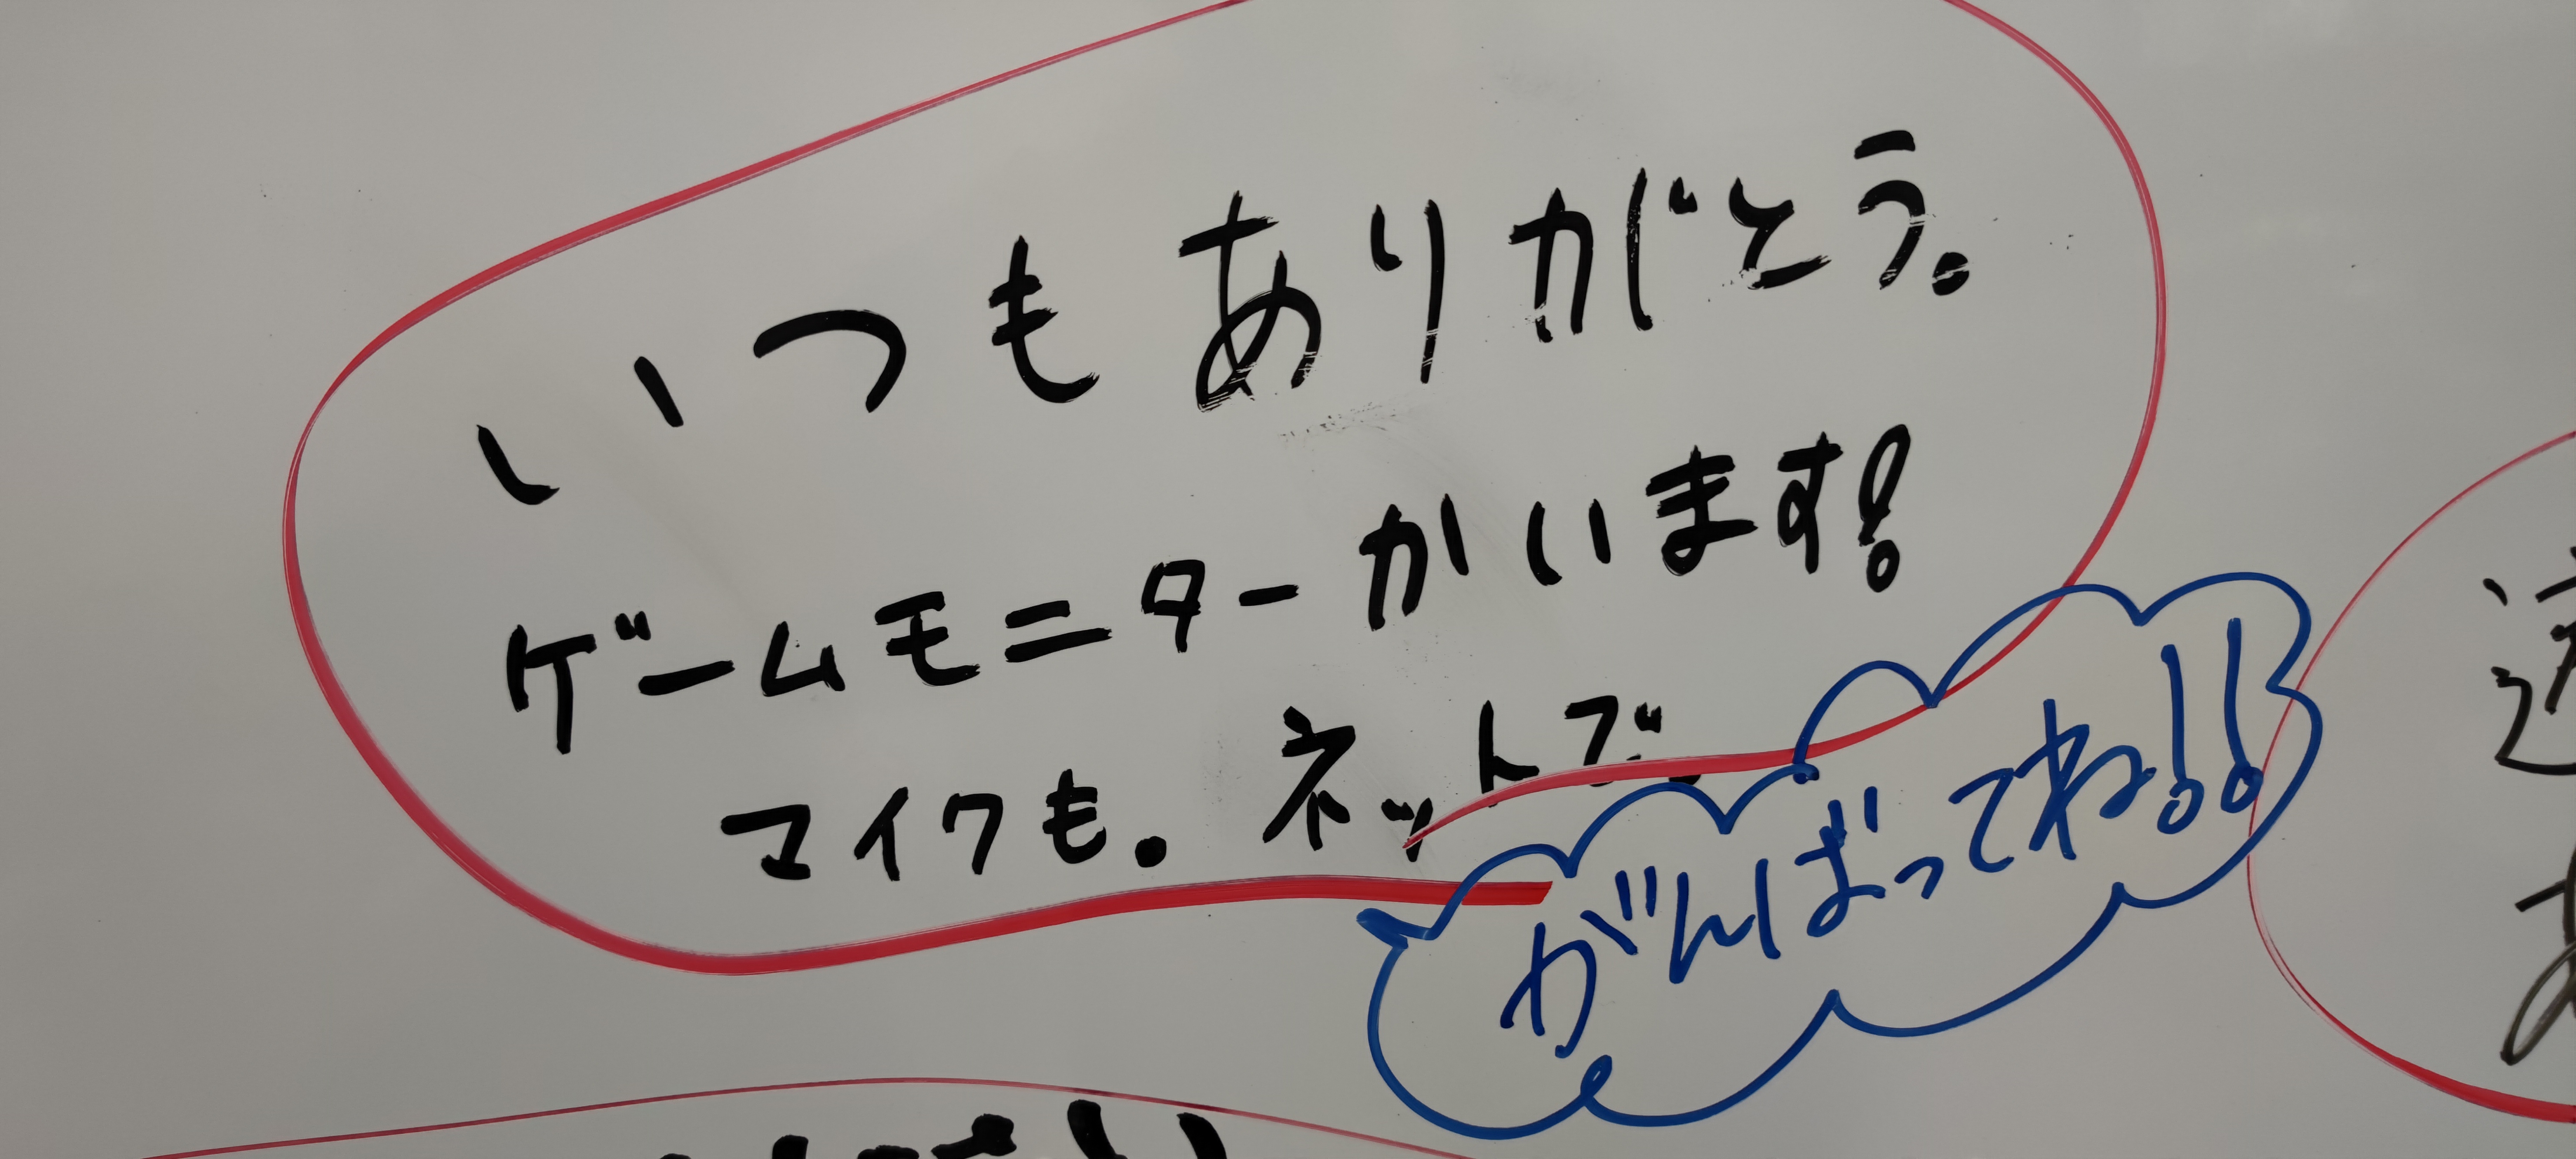 いつもありがとう。
ゲームモニターかいます!
マイクも。ネットで。
がんばってね!!